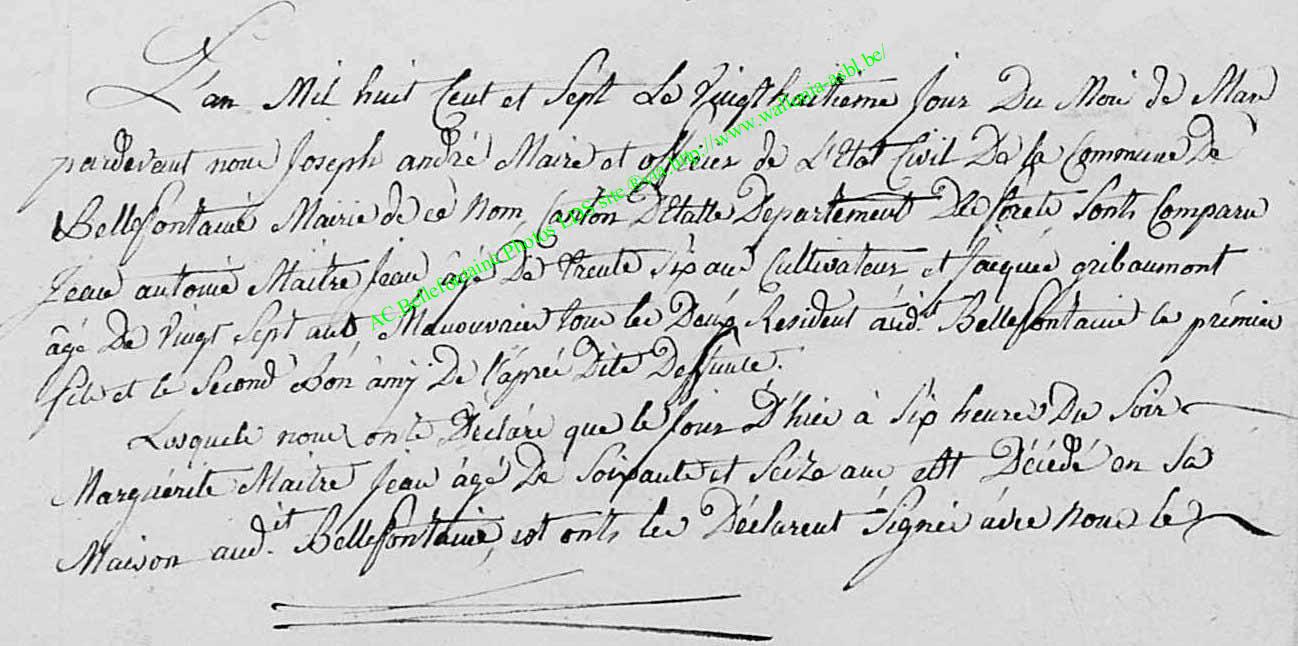 L'an Mil huit Cent et Sept Le Vingt huitieme Jour Du Moi de Mars
pardevant nous Joseph andré Maire et officier de L'Etat Civil De la Commune De
Bellefontaine Mairie de cè Nom, Canton D'Etalle Departement De forets Sonts Comparu
Jean antoine Maitre Jean âgé De trente Six ans Cultivateur et Jacque gribaumont
âgé De Vingt Sept ans, Manouvrier tous les Deux Resident aud.it Bellefontaine le prémier
fils et le Second Bon ami De l'aprée Dite Deffunte.
Lesquels nous onts Déclaré que le Jour D'hier à Six heures Du Soir
Marguérite Maitre Jean âgé De Soixante et Seize ans est Décédé en Sa
Maison aud.it Bellefontaine, et onts les Déclarent Signée avec nous le
AC Bellefontaine Photos LDS site ® via http://www.wallonia-asbl.be/